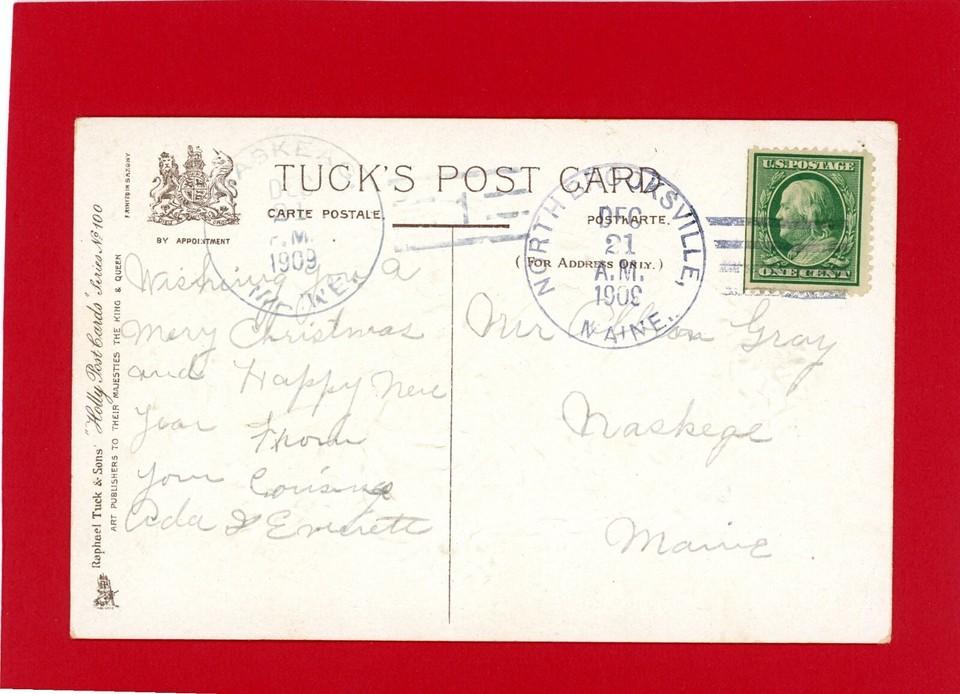 TUCK'S POST CARD
CARTE POSTALE.
POSTKARTE.
(FOR ADDRESS ONLY.)
BY APPOINTMENT
PRINTED IN SAXONY
Raphael Tuck & Sons' "Holly Post Cards" Series No 100
ART PUBLISHERS TO THEIR MAJESTIES THE KING & QUEEN
DEC
A.M.
1909
NORTH BROOKSVILLE,
DEC
21
A.M.
1909
MAINE.
U.S. POSTAGE
ONE CENT
Wishing you a
Mery Christmas
and Happy New
Year From
your Cousins
Ada & Everett
Mr Gray
Maskege
Maine